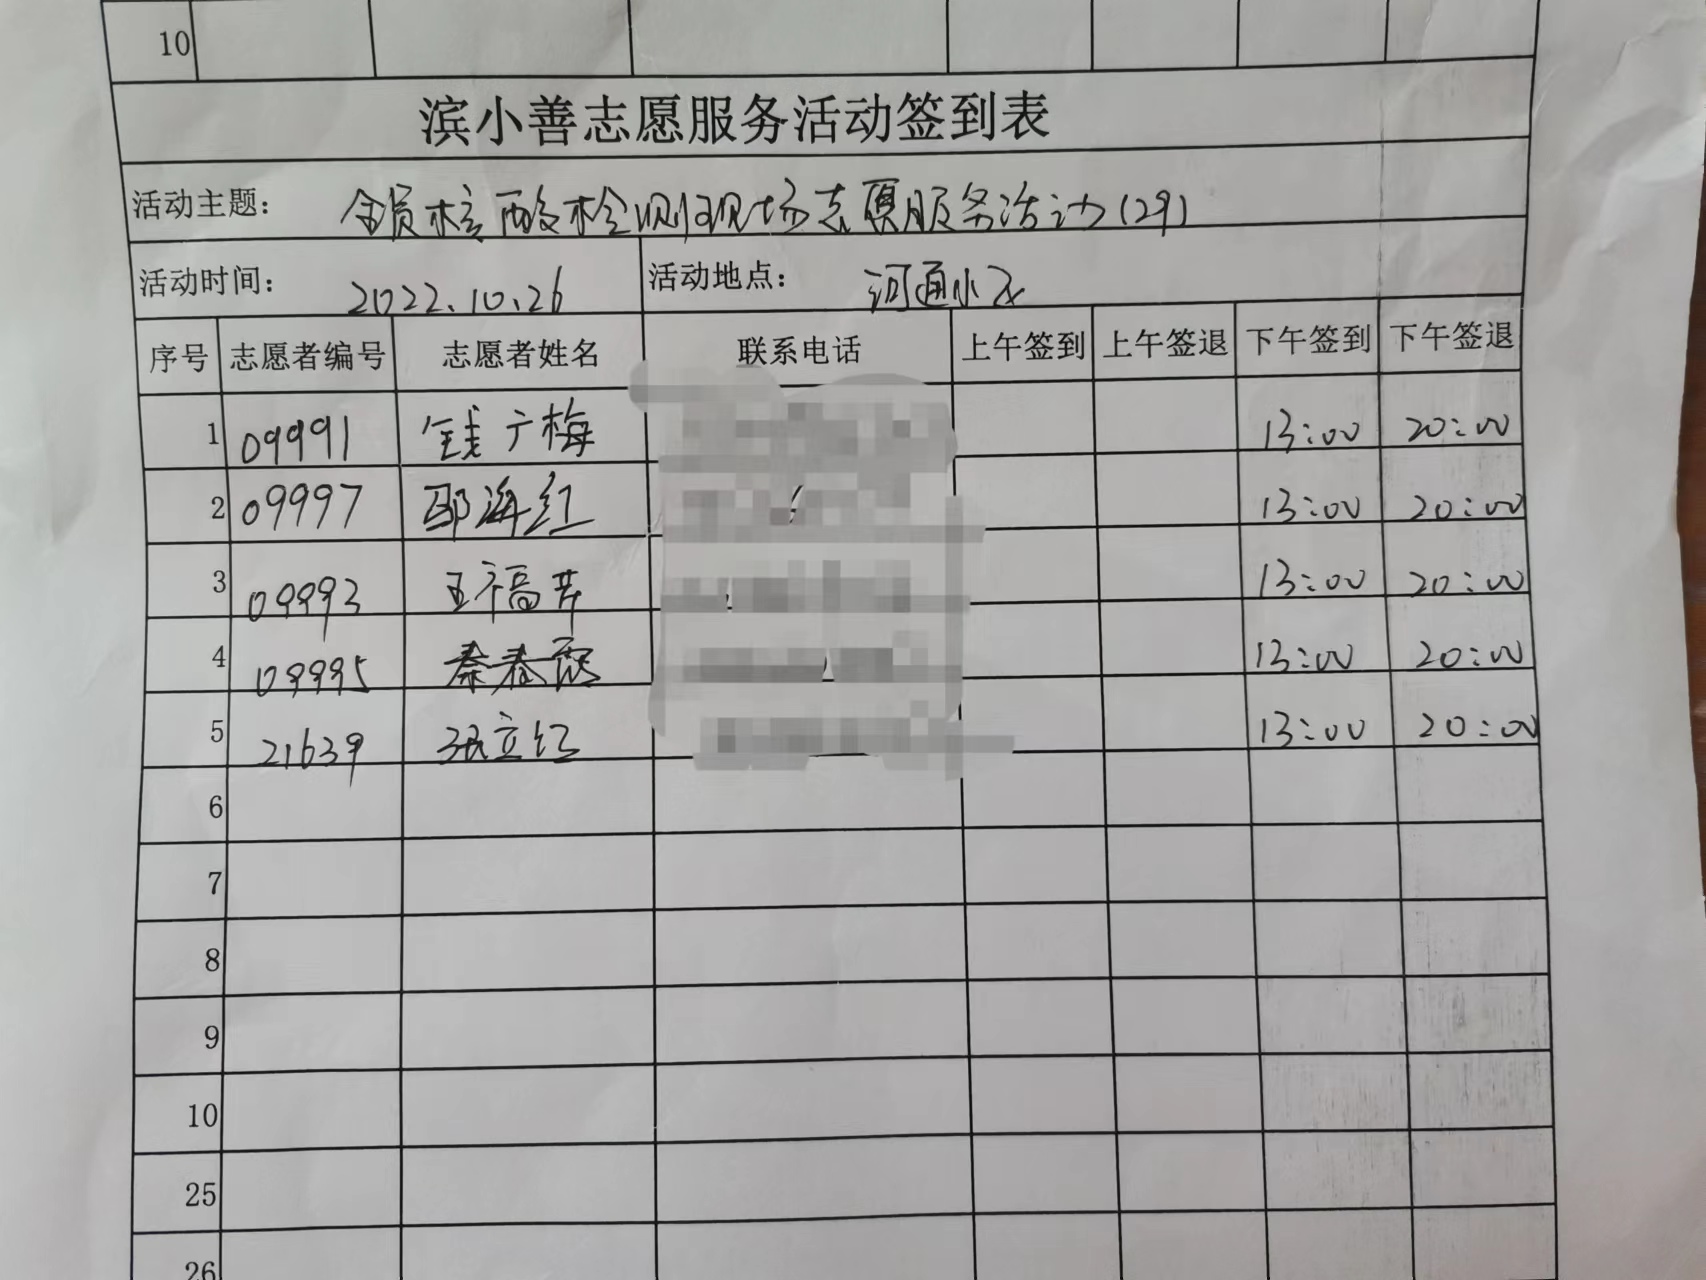 10
滨小善志愿服务活动签到表
活动主题： 全员核酸检测现场志愿服务活动(29)
活动时间： 2022.10.26 活动地点： 河通小区
序号 志愿者编号 志愿者姓名 联系电话 上午签到 上午签退 下午签到 下午签退
1 09991 钱广梅 13:00 20:00
2 09997 邵海红 13:00 20:00
3 09993 王福英 13:00 20:00
4 09995 秦春霞 13:00 20:00
5 21639 张立红 13:00 20:00
6
7
8
9
10
25
26